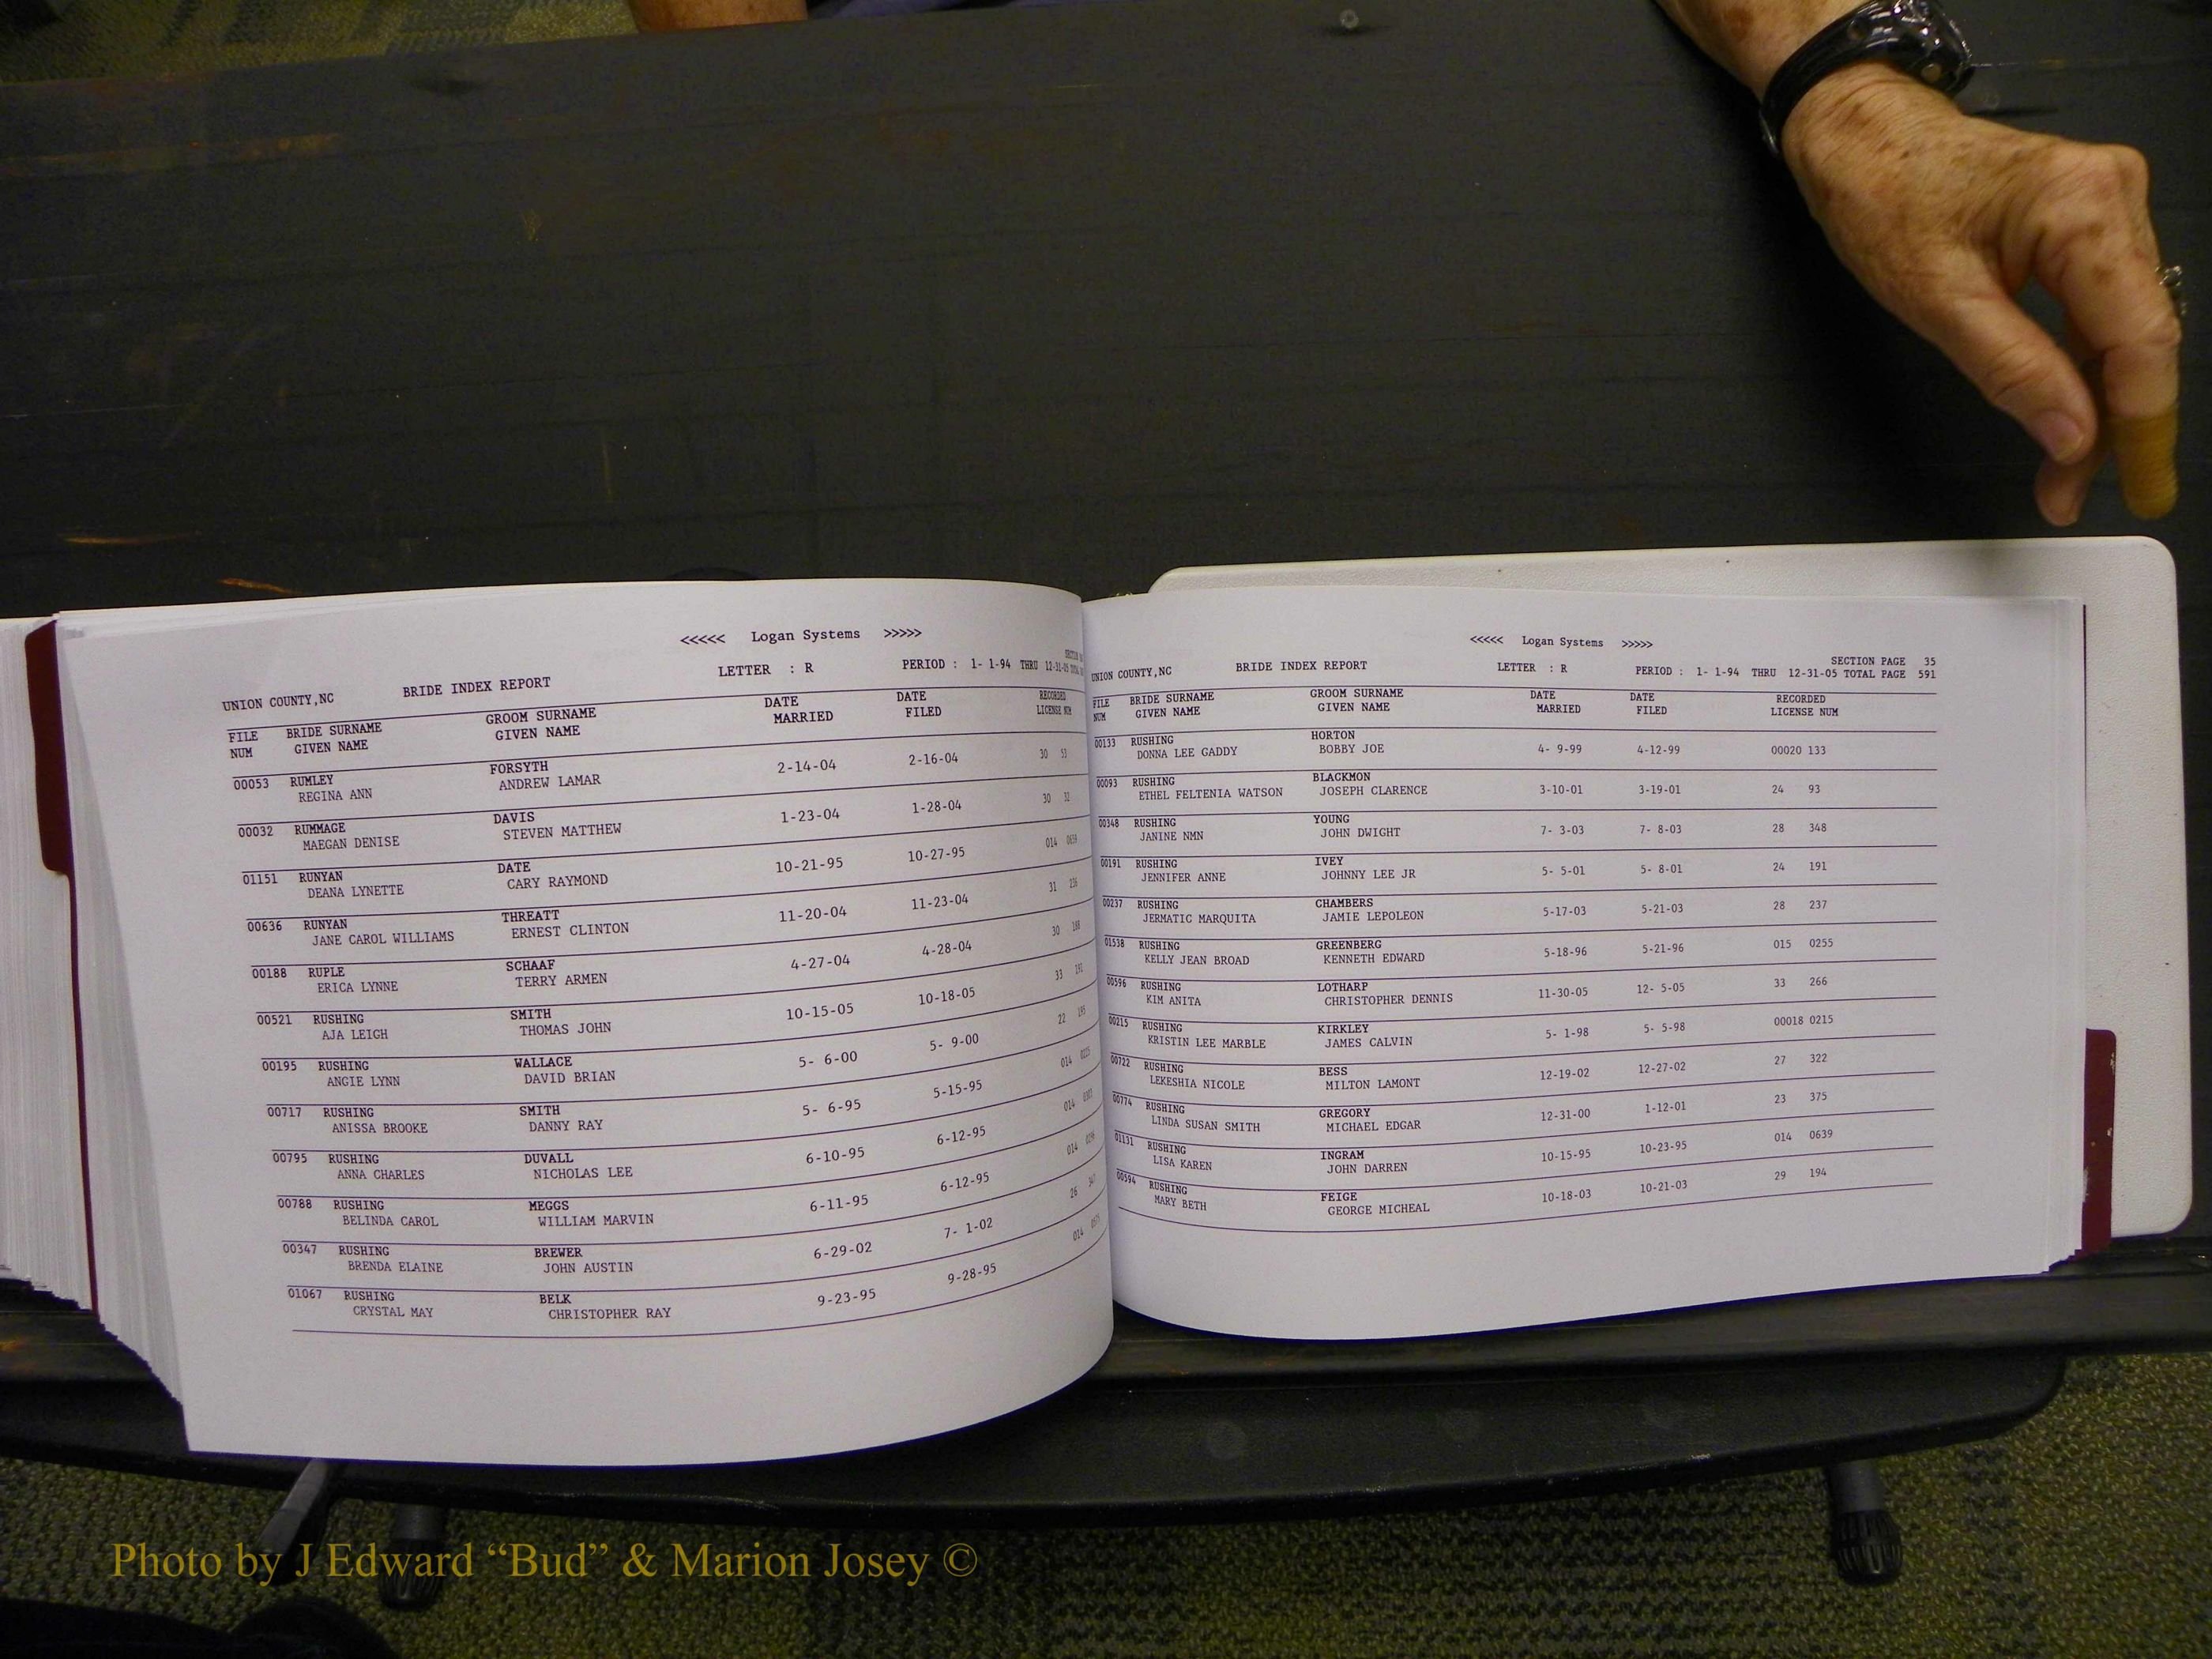 <<<<< Logan Systems >>>>>
UNION COUNTY,NC BRIDE INDEX REPORT LETTER : R PERIOD : 1- 1-94 THRU 12-31-05 TOTAL
FILE BRIDE SURNAME GROOM SURNAME DATE DATE RECORDED
NUM GIVEN NAME GIVEN NAME MARRIED FILED LICENSE NUM
00053 RUMLEY FORSYTH 2-14-04 2-16-04 30 53
REGINA ANN ANDREW LAMAR
00032 RUMMAGE DAVIS 1-23-04 1-28-04 30 32
MAEGAN DENISE STEVEN MATTHEW
01151 RUNYAN DATE 10-21-95 10-27-95 014
DEANA LYNETTE CARY RAYMOND
00636 RUNYAN THREATT 11-20-04 11-23-04 31
JANE CAROL WILLIAMS ERNEST CLINTON
00188 RUPLE SCHAAF 4-27-04 4-28-04 30 188
ERICA LYNNE TERRY ARMEN
00521 RUSHING SMITH 10-15-05 10-18-05 33
AJA LEIGH THOMAS JOHN
00195 RUSHING WALLACE 5- 6-00 5- 9-00 22 195
ANGIE LYNN DAVID BRIAN
00717 RUSHING SMITH 5- 6-95 5-15-95 014
ANISSA BROOKE DANNY RAY
00795 RUSHING DUVALL 6-10-95 6-12-95 014
ANNA CHARLES NICHOLAS LEE
00788 RUSHING MEGGS 6-11-95 6-12-95 014
BELINDA CAROL WILLIAM MARVIN
00347 RUSHING BREWER 6-29-02 7- 1-02 26
BRENDA ELAINE JOHN AUSTIN
01067 RUSHING BELK 9-23-95 9-28-95 014
CRYSTAL MAY CHRISTOPHER RAY
<<<<< Logan Systems >>>>>
SECTION PAGE 35
UNION COUNTY,NC BRIDE INDEX REPORT LETTER : R PERIOD : 1- 1-94 THRU 12-31-05 TOTAL PAGE 591
FILE BRIDE SURNAME GROOM SURNAME DATE DATE RECORDED
NUM GIVEN NAME GIVEN NAME MARRIED FILED LICENSE NUM
00133 RUSHING HORTON 4- 9-99 4-12-99 00020 133
DONNA LEE GADDY BOBBY JOE
00093 RUSHING BLACKMON 3-10-01 3-19-01 24 93
ETHEL FELTENIA WATSON JOSEPH CLARENCE
00348 RUSHING YOUNG 7- 3-03 7- 8-03 28 348
JANINE NMN JOHN DWIGHT
00191 RUSHING IVEY 5- 5-01 5- 8-01 24 191
JENNIFER ANNE JOHNNY LEE JR
00237 RUSHING CHAMBERS 5-17-03 5-21-03 28 237
JERMATIC MARQUITA JAMIE LEPOLEON
01538 RUSHING GREENBERG 5-18-96 5-21-96 015 0255
KELLY JEAN BROAD KENNETH EDWARD
00596 RUSHING LOTHARP 11-30-05 12- 5-05 33 266
KIM ANITA CHRISTOPHER DENNIS
00215 RUSHING KIRKLEY 5- 1-98 5- 5-98 00018 0215
KRISTIN LEE MARBLE JAMES CALVIN
00722 RUSHING BESS 12-19-02 12-27-02 27 322
LEKESHIA NICOLE MILTON LAMONT
00774 RUSHING GREGORY 12-31-00 1-12-01 23 375
LINDA SUSAN SMITH MICHAEL EDGAR
01131 RUSHING INGRAM 10-15-95 10-23-95 014 0639
LISA KAREN JOHN DARREN
00594 RUSHING FEIGE 10-18-03 10-21-03 29 194
MARY BETH GEORGE MICHEAL
Photo by J Edward “Bud” & Marion Josey ©